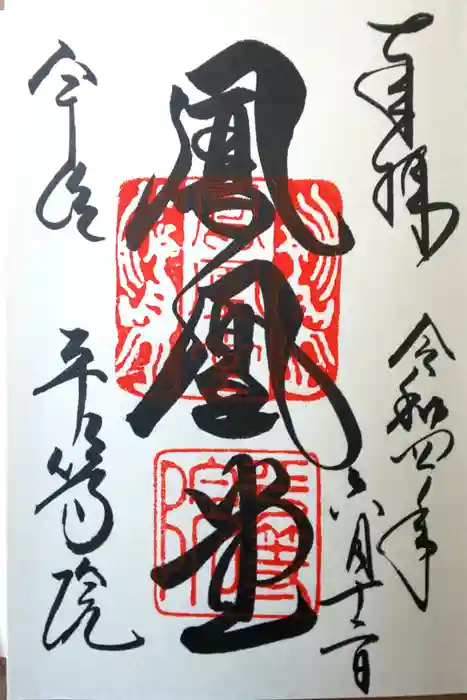 奉拝
令和四年
六月十二日
鳳凰堂
宇治
平等院